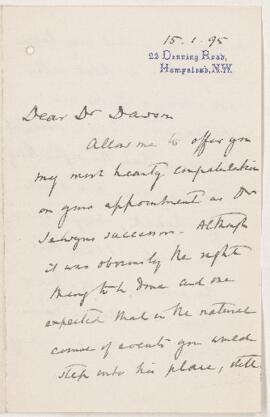 15.1.95
23 Denning Road,
Hampstead, N.W.
Dear Dr Dawson
Allow me to offer you
my most hearty congratulations
on your appointment as Dr
Selwyns successor. Although
it was obviously the right
thing to be done and one
expected that in the natural
course of events you would
step into his place, still